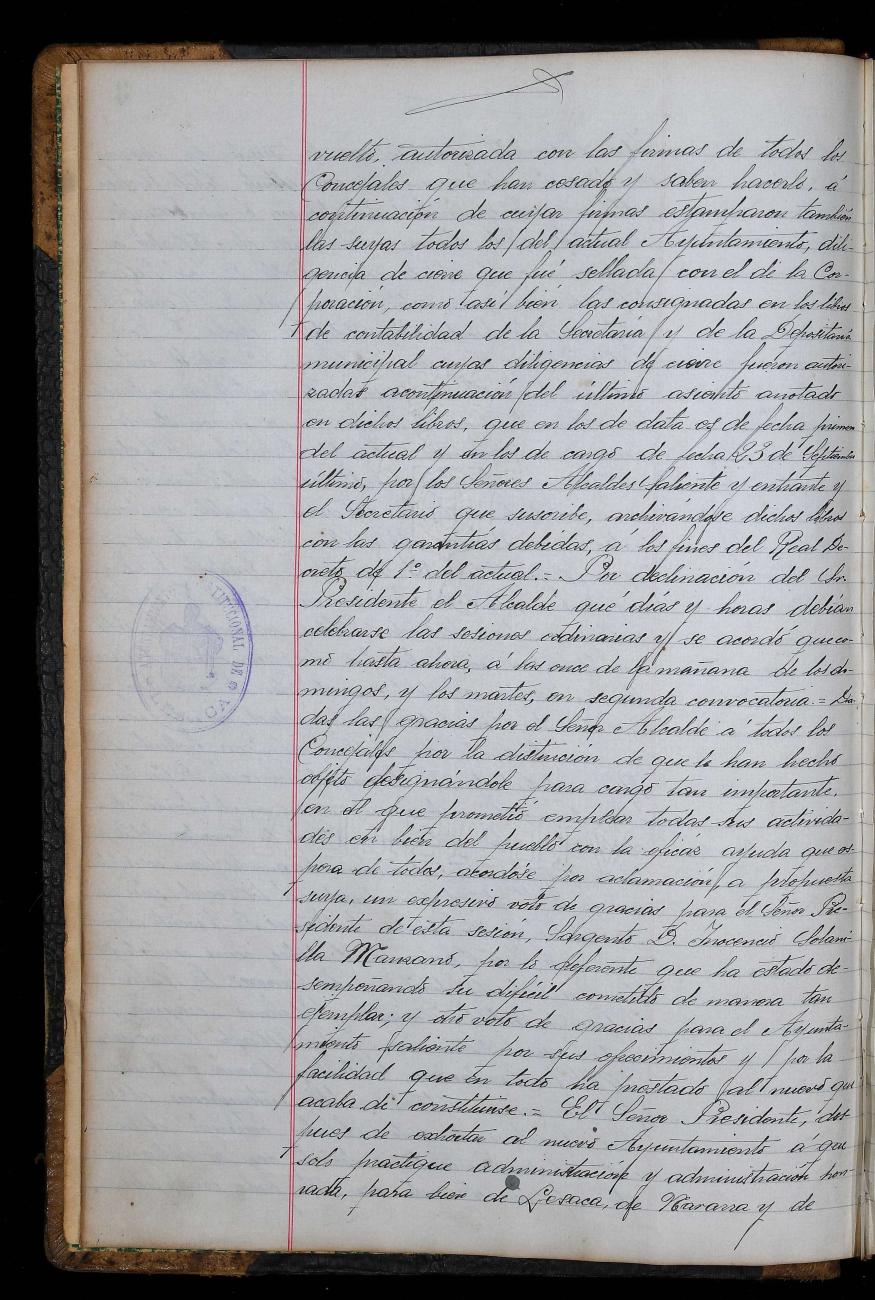 vuelto, autorizada con las firmas de todos los
Concejales que han cesado y saben hacerlo, á
continuación de cuyas firmas estamparon también
las suyas todos los del actual Ayuntamiento, dili-
gencia de cierre que fué sellada con el de la Cor-
poración, como así bien las consignadas en los libros
de contabilidad de la Secretaría y de la Depositaria
municipal cuyas diligencias de cierre fueron autori-
zadas acontinuación del último asiento anotado
en dichos libros, que en los de data es de fecha primero
del actual y en los de cargo de fecha 23 de Septiembre
último, por los Señores Alcaldes saliente y entrante y
el Secretario que suscribe, archivándose dichos libros
con las garantías debidas, á los fines del Real De-
creto de 1º del actual.= Por declinación del Sr.
Presidente el Alcalde qué diás y horas debían
celebrarse las sesiones ordinarias y se acordó que co-
mo hasta ahora, á las once de la mañana de los do-
mingos, y los martes, en segunda convocatoria.= Da-
das las gracias por el Señor Alcalde á todos los
Concejales por la distinción de que le han hecho
objeto designándole para cargo tan importante,
en el que prometió emplear todas sus activida-
des en bien del pueblo con la eficáz ayuda que es-
pera de todos, acordóse por aclamación, a propuesta
suya, un expresivo voto de gracias para el Señor Pre-
sidente de esta sesion, Sargento D. Inocencio Solani-
lla Manzano, por lo deferente que ha estado de-
sempeñando su difícil cometido de manera tan
ejemplar; y otro voto de gracias para el Ayunta-
miento saliente por sus ofrecimientos y por la
facilidad que en todo ha prestado al nuevo que
acaba de constituirse.= El Señor Presidente, des-
pues de exhortar al nuevo Ayuntamiento á que
solo practique administración y administración hon-
rada, para bien de Lesaca, de Navarra y de
CIONAL DE